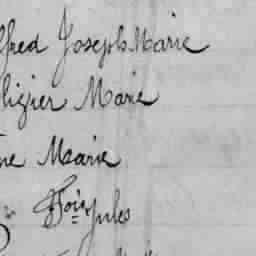 lfred Joseph Marie
ligier Marie
ne Maarie
Jules